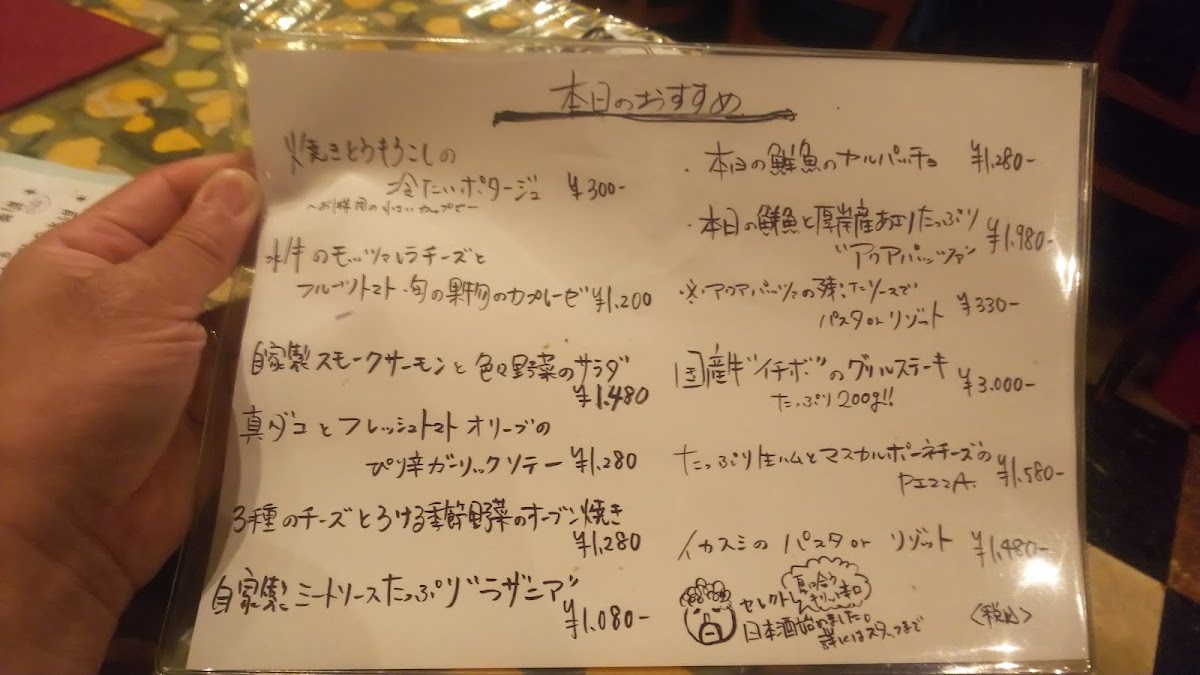 本日のおすすめ
焼きとうもろこしの
冷たいポタージュ ¥300-
水牛のモッツァレラチーズと
フルーツトマト・旬の果物のカプレーゼ ¥1,200
自家製スモークサーモンと色々野菜のサラダ
¥1,480
真ダコとフレッシュトマトオリーブの
ぴり辛ガーリックソテー ¥1,280
3種のチーズとろける季節野菜のオーブン焼き
¥1,280
自家製ミートソースたっぷり"ラザニア"
¥1,080-
・本日の鮮魚のカルパッチョ ¥1,280-
・本日の鮮魚と厚岸産あさりたっぷり
"アクアパッツァ" ¥1,980-
アクアパッツァの残ったソースで
パスタorリゾット ¥330-
国産牛"イチボ"のグリルステーキ ¥3,000-
たっぷり200g!!
たっぷり生ハムとマスカルポーネチーズの
PIZZA. ¥1,580-
イカスミのパスタor リゾット ¥1,480-
セレクトし
日本酒始めました。
詳しくはスタッフまで
<税込>